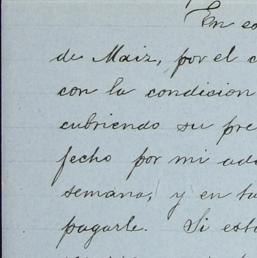 En es
de Maiz, por el c
con la condicion
cubriendo su pre
fecho por mi ade
semana, y en ta
pagarle. Si esta